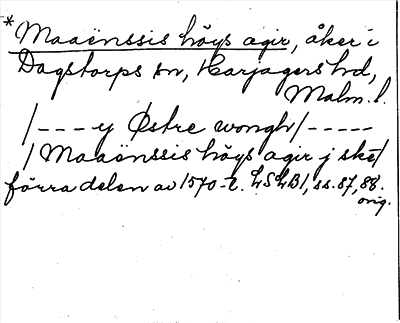 *Maaënssis höys agir, åker i
Dagstorps sn, Harjagers hd,
Malm. l.
/---y Østre wongh/-----
/Maaënssis höys agir j sket/
förra delen av 1570-t. LSLB1, ss. 87, 88.
orig.